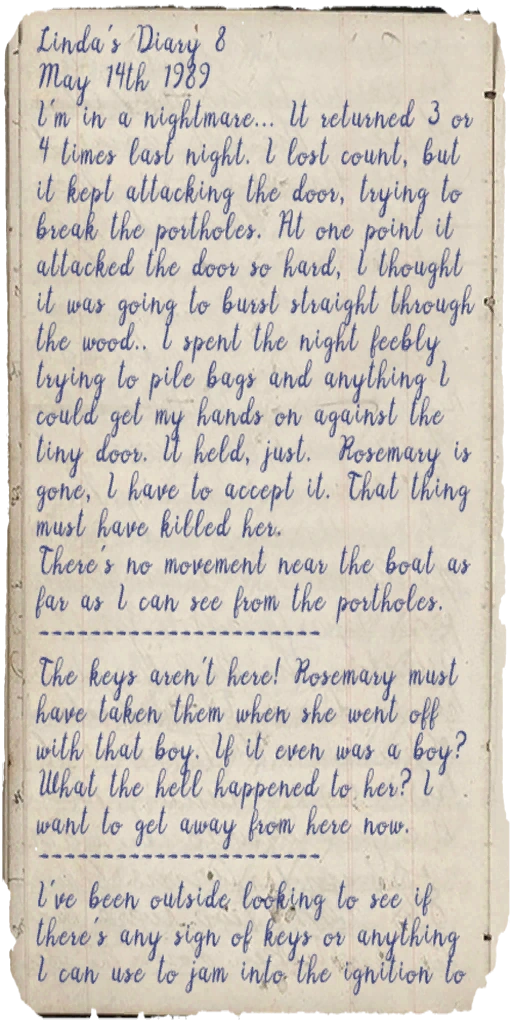 Linda's Diary 8
May 14th 1989
I'm in a nightmare... It returned 3 or
4 times last night. I lost count, but
it kept attacking the door, trying to
break the portholes. At one point it
attacked the door so hard, I thought
it was going to burst straight through
the wood.. I spent the night feebly
trying to pile bags and anything I
could get my hands on against the
tiny door. It held, just. Rosemary is
gone, I have to accept it. That thing
must have killed her.
There's no movement near the boat as
far as I can see from the portholes.
----------------------
The keys aren't here! Rosemary must
have taken them when she went off
with that boy. If it even was a boy?
What the hell happened to her? I
want to get away from here now.
----------------------
I've been outside, looking to see if
there's any sign of keys or anything
I can use to jam into the ignition to